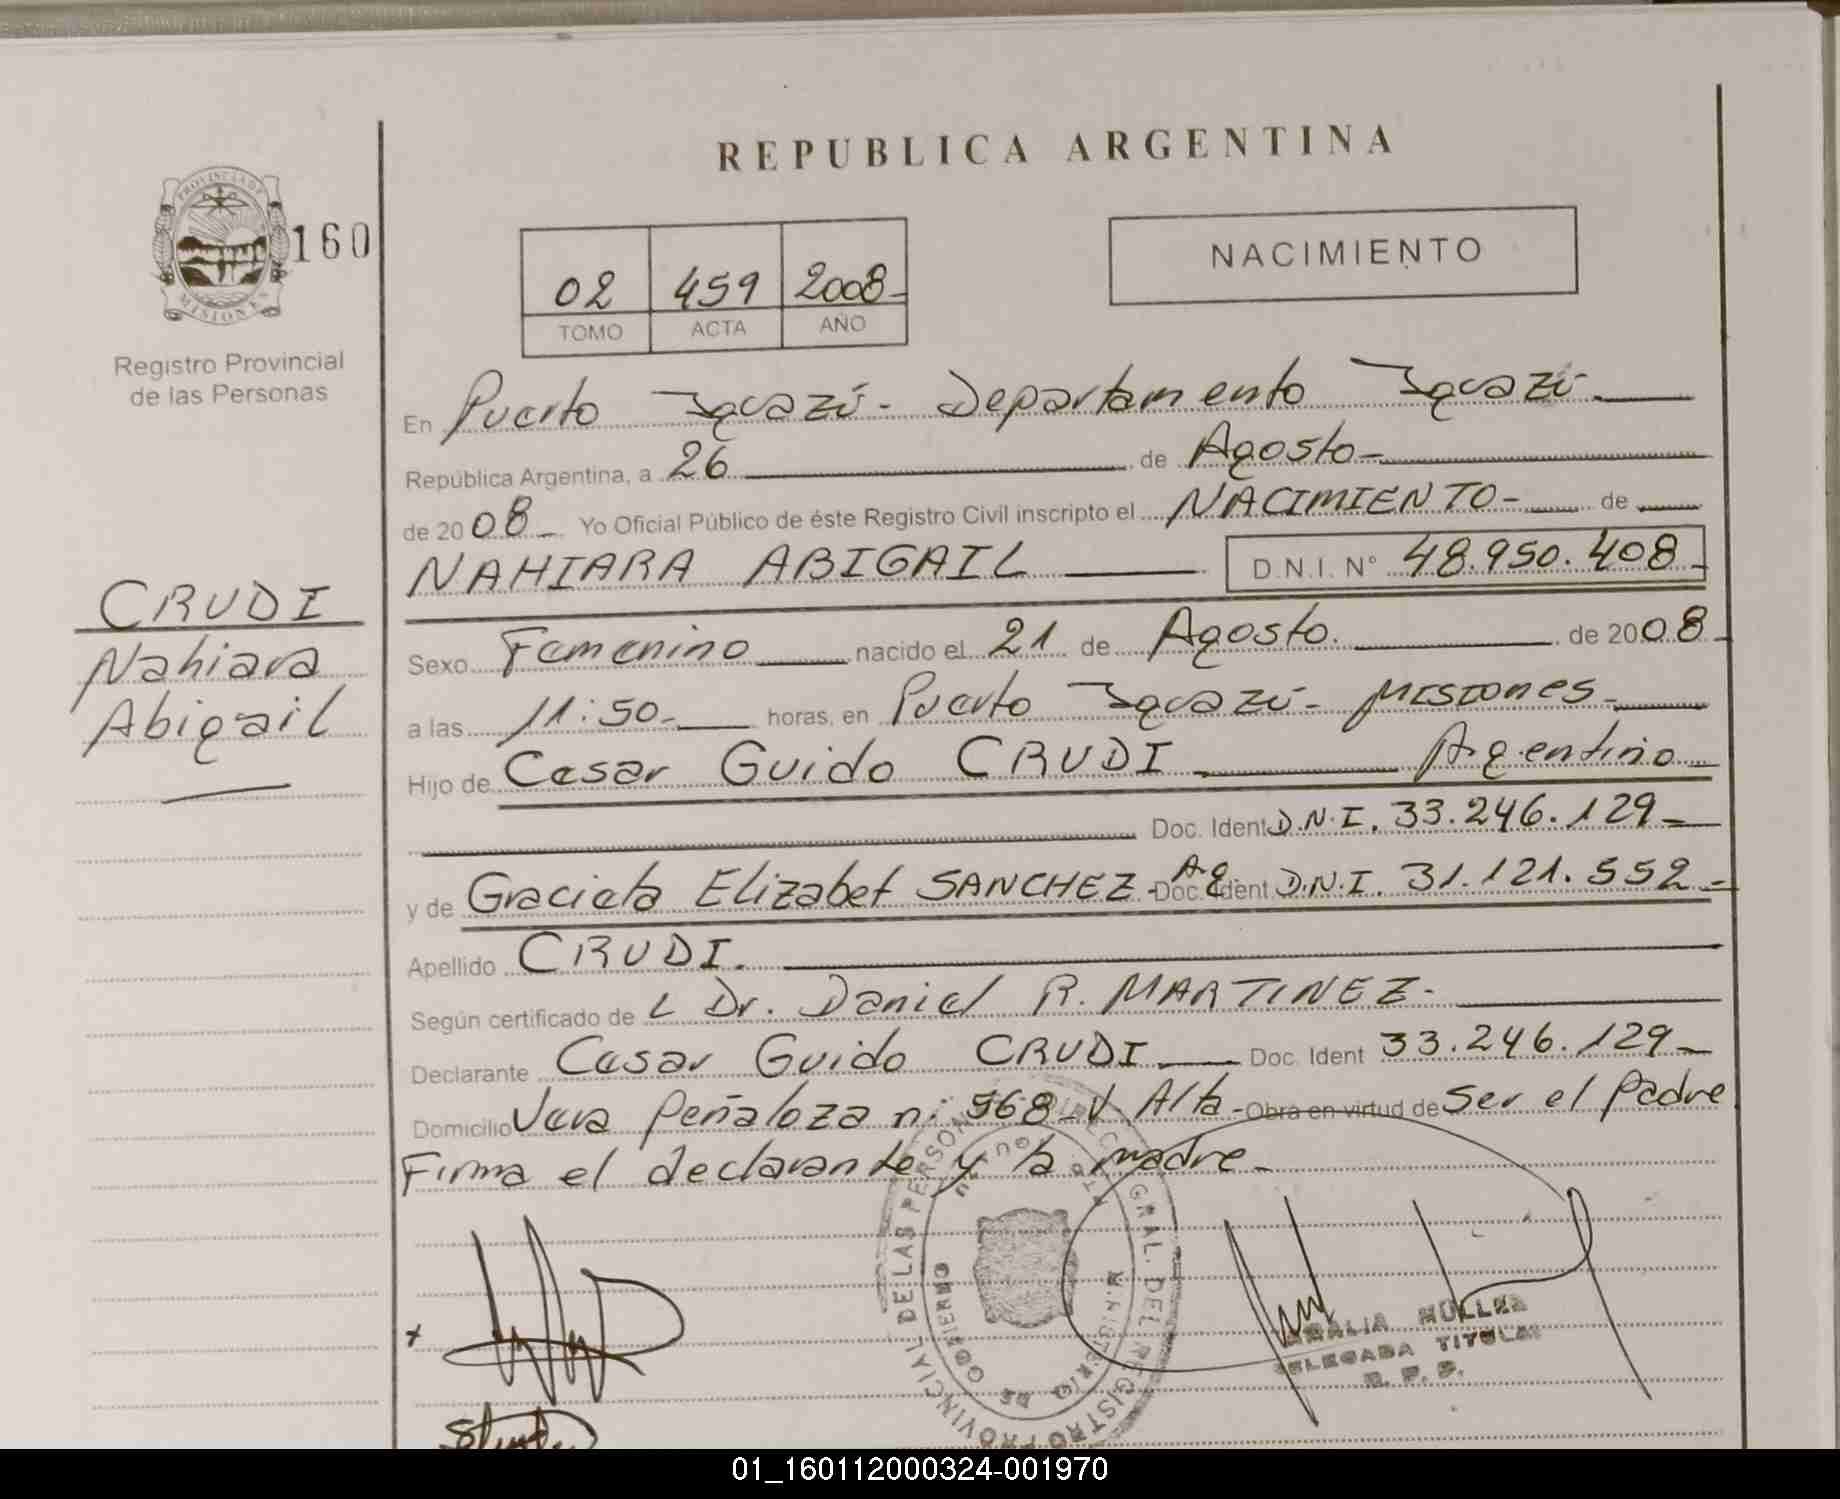 REPUBLICA ARGENTINA
PROVINCIA DE
MISIONES
160
Registro Provincial
de las Personas
02 459 2008-
TOMO ACTA AÑO
NACIMIENTO
CRUDI
Nahiara
Abigail
En Puerto Iguazú - Departamento Iguazú
República Argentina, a 26 de Agosto-
de 2008- Yo Oficial Público de éste Registro Civil inscripto el NACIMIENTO- de
NAHIARA ABIGAIL D.N.I. N° 48.950.408-
Sexo Femenino nacido el 21 de Agosto. de 2008-
a las 11:50- horas, en Puerto Iguazú - Misiones-
Hijo de Cesar Guido CRUDI Argentino
Doc. Ident D.N.I. 33.246.129-
y de Graciela Elizabet SANCHEZ - Ag Doc. Ident D.N.I. 31.121.552-
Apellido CRUDI.
Según certificado de L Dr. Daniel R. MARTINEZ-
Declarante Cesar Guido CRUDI Doc. Ident 33.246.129-
Domicilio Vera Peñaloza n: 968-V. Alta - Obra en virtud de Ser el Padre
Firma el declarante y la madre-
DIRECC GRAL. DEL REGISTRO PROVINCIAL DE LAS PERSONAS
MINISTERIO DE GOBIERNO
MULLER
DELEGADA TITULAR
R. P. P.
01_160112000324-001970